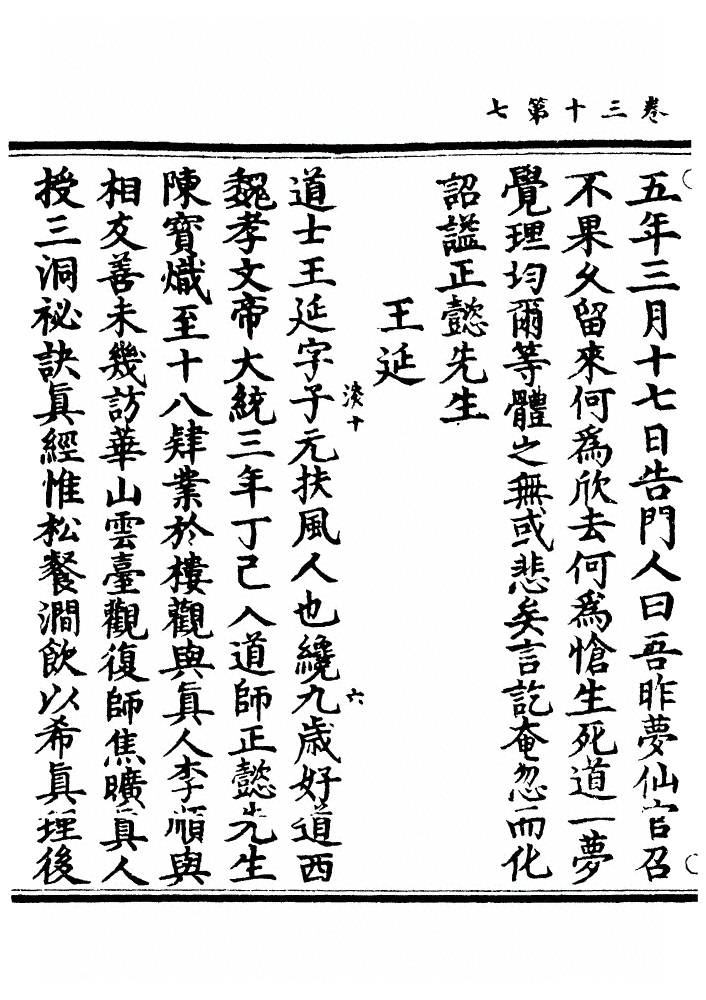 卷三十第七
五年三月十七日告門人曰吾昨夢仙官召
不果久留來何為欣去何為愴生死道一夢
覺理均爾等體之無或悲矣言訖奄忽而化
詔謚正懿先生
王延
道士王延字子元扶風人也纔九歲好道西
魏孝文帝大統三年丁巳入道師正懿先生
陳寶熾至十八肄業於樓觀與真人李順與
相友善未幾訪華山雲臺觀復師焦曠真人
授三洞祕訣真經惟松餐澗飲以希真理後
淡十
六